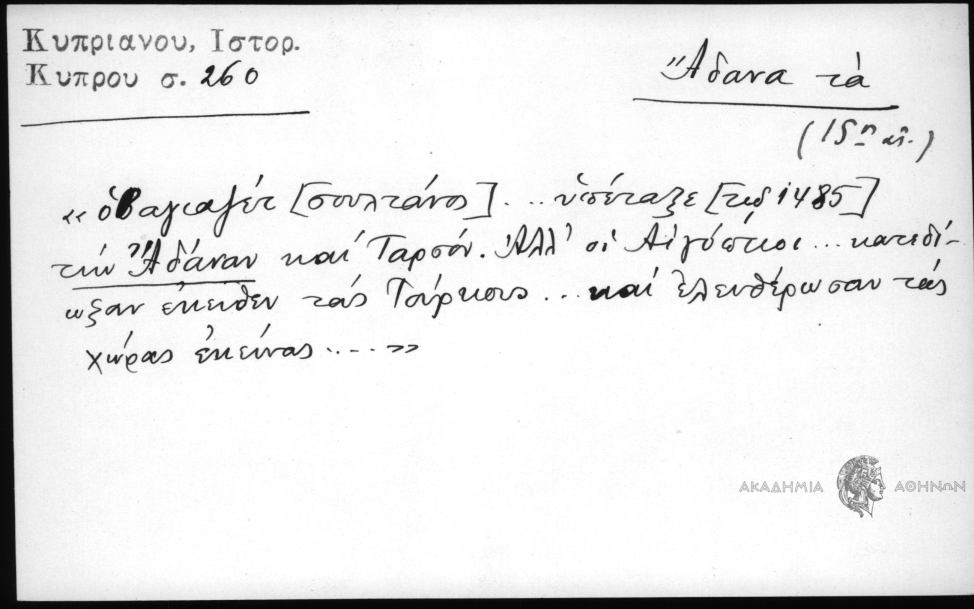 Κυπριανου, Ιστορ.
Κυπρου σ. 260
Ἄδανα τὰ
(15η αἰ.)
«ὁ Βαγιαζέτ [σουλτάνος] ... ὑπέταξε [τῷ 1485]
τὴν Ἀδάναν καὶ Ταρσόν. Ἀλλ' οἱ Αἰγύπτιοι ... κατεδί-
ωξαν ἐκεῖθεν τοὺς Τούρκους ... καὶ ἐλευθέρωσαν τὰς
χώρας ἐκείνας .... »
ΑΚΑΔΗΜΙΑ ΑΘΗΝΩΝ